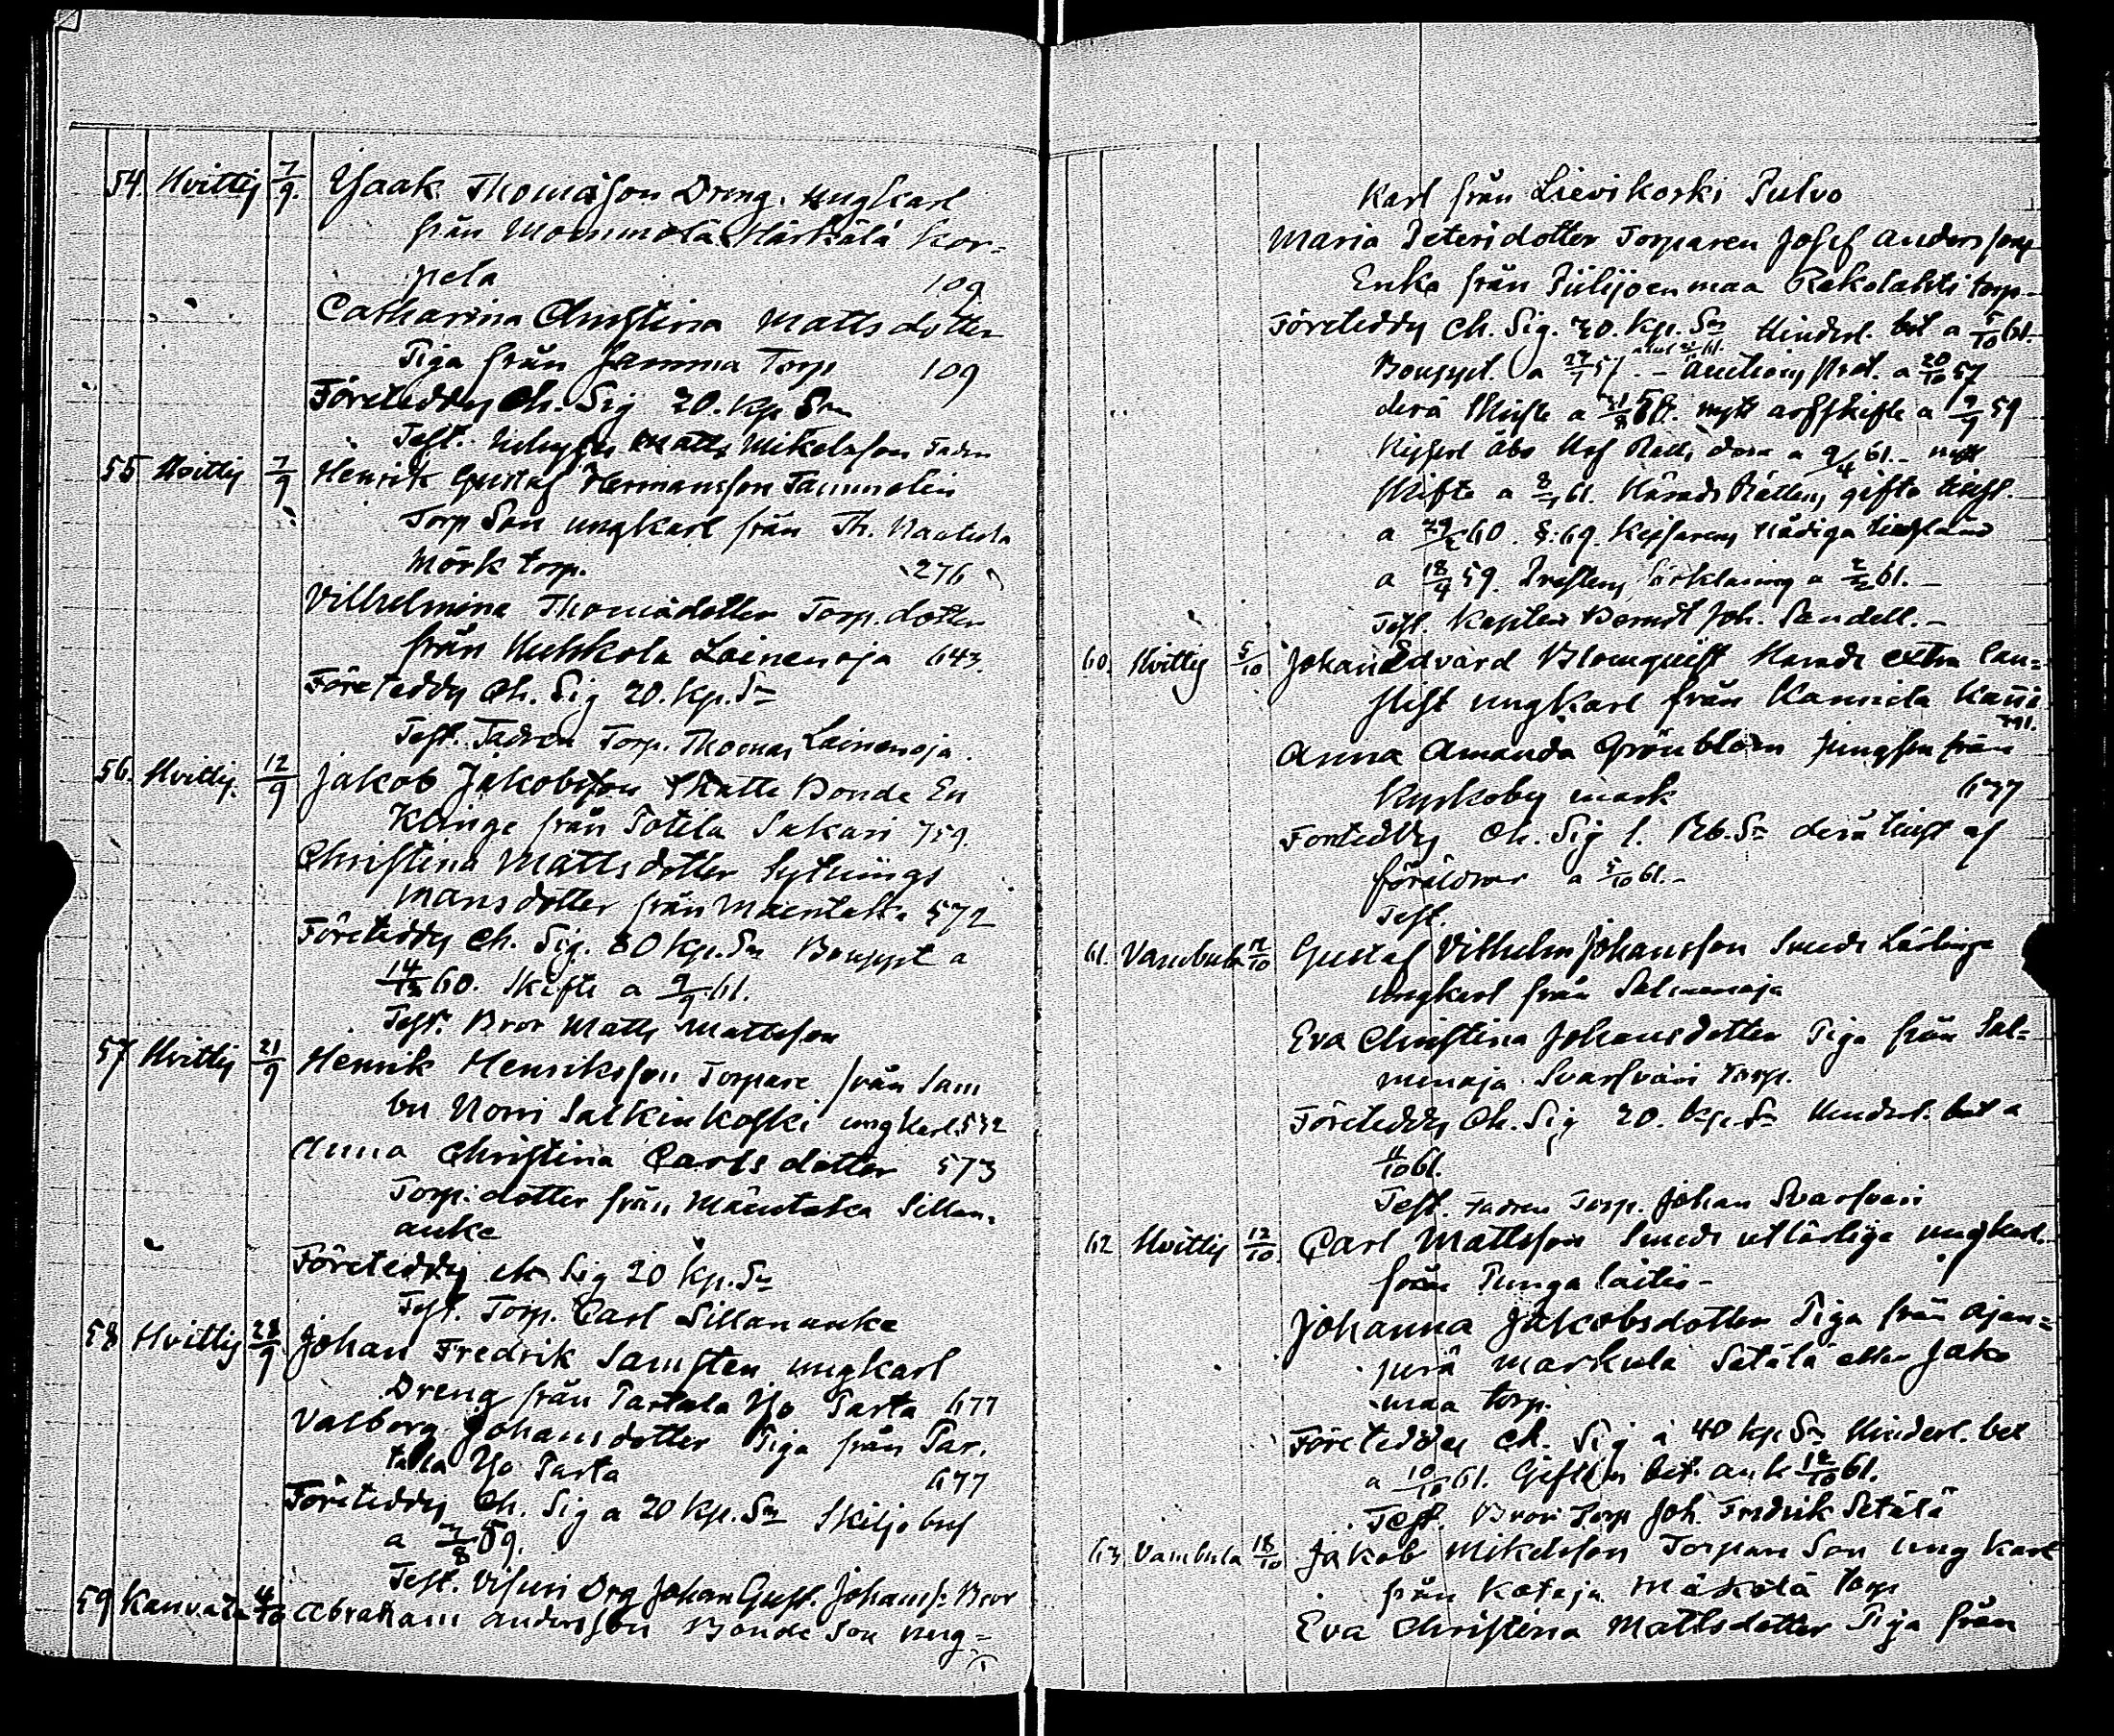 54. Hvittis 7/9. Isaak Thomasson Dreng, ungkarl
från Mommola Härkälä Kor-
pela 109
Catharina Christina Mattsdotter
Piga från Jamma Torp 109
Företeddes Ch. Sig 20. Kp Sr
Test. Matts Mikelsson Fadren
55 Hvittis 7/9 Henrik Gustaf Hermansson Tammelin
Torp Son ungkarl från Th. Naatula
Mörk torp. 276
Vilhelmina Thomasdotter Torp. dotter
från Huhkola Lainenoja 643.
Företeddes Ch. Sig 20. Kp. Sr
Test. Fadren Torp. Thomas Lainenoja.
56. Hvittis. 12/9 Jakob Jakobsson Skatte Bonde En
Klinge från Potila Sakari 759.
Christina Mattsdotter Sytnings
mansdotter från Mäentaka 572
Företeddes Ch. Sig. 80 Kp. Sr Bouppt a
14/12 60. Skifte a 9/9 61.
Test. Bror Matts Mattsson
57 Hvittis 21/9 Henrik Henriksson Torpare från Sam
bu Nomi Salkinkoski ungkarl. 532
Anna Christina Carlsdotter 573
Torp. dotter från Mäentaka Sillan-
anke
Företeddes ch Sig 20 Kp. Sr
Test. Torp. Carl Sillananke
58 Hvittis 28/9 Johan Fredrik Samsten ungkarl
Dreng från Partala Yo Parta 677
Valborg Johansdotter Piga från Par-
tala Yo Parta 677
Företeddes Ch. Sig a 20 Kp. Sr Skiljobref
a 7/8 59.
Test. Drg Johan Gust. Johanss. Bror
59 4/10 Abraham Andersson Bonde Son ung-
karl från Lievikoski Pulvo
Maria Petersdotter Torparen Josef Anderssons
Enka från Piilijoenmaa Rekolahti torp.
Företeddes Ch. Sig. 20. Kp. Sr Hinderl. bet a 5/10 61.
Bouppt. a 27/7 57. - Auctions Prot. a 20/10 57
derå Skifte a nytt arfskifte a 9/9 59
Åbo Hof Rätts dom a 9/4 61. - nytt
Skifte a 8/7 61. Härads Rättens gifto tillst.
a 29/2 60. §: 69. Kejsarens Nådiga
a 18/4 59. a 2/2 61. -
Test. Kapten Berndt Joh. Sandell. -
60. Hvittis 5/10 Johan Edvard Blomquist Härads extra Can-
slist ungkarl från Kannila Kanni
391.
Anna Amanda Grönblom jungfru från
Kyrkoby mark 677
Företeddes Ch. Sig 1. Rb. Sr derå tillst af
föräldrar a 5/10 61. -
Test.
61. Vambula 11/10 Gustaf Vilhelm Johansson Smeds Lärlinge
ungkarl från Salmenoja
Eva Christina Johansdotter Piga från Sal-
menoja Svarfvari Torp.
Företeddes Ch. Sig 20. Kp. Sr Hinderl. bet a
11/10 61.
Test. Fadren Torp. Johan Svarfvari
62 Hvittis 12/10. Carl Mattsson Smeds utlärlige ungkarl.
från Punga laitio -
Johanna Jakobsdotter Piga från Ajan-
perä Markula Setälä eller Jako
maa torp.
Företeddes Ch. Sig a 40 Kp Sr Hinderl. bet
a 10/10 61. 12/10 61.
Test. Bror Torp Joh. Fredrik Setälä
63 Vambula 18/10 Jakob Mikelsson Torpare Son ungkarl
från Kataja Mäkelä torp
Eva Christina Mattsdotter Piga från